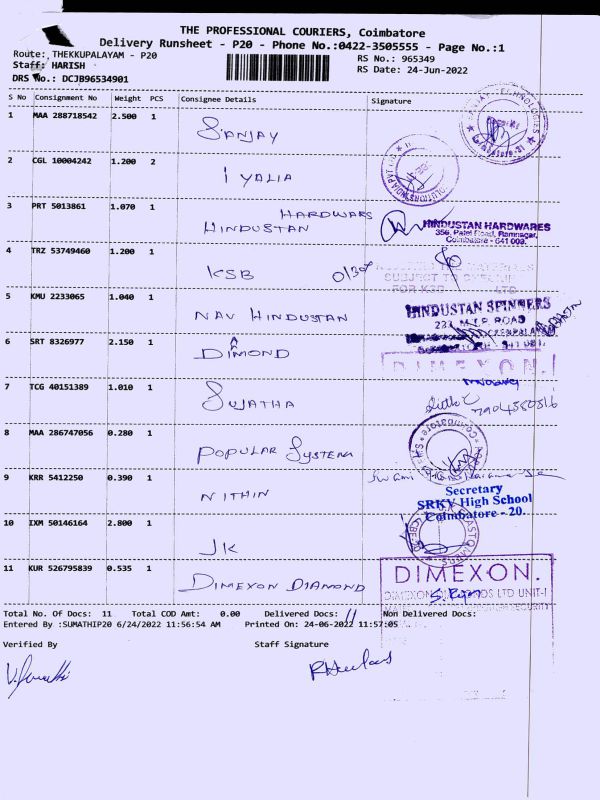 THE PROFESSIONAL COURIERS, Coimbatore
Delivery Runsheet - P20 - Phone No.:0422-3505555 - Page No.:1
Route: THEKKUPALAYAM - P20
RS No.: 965349
Staff: HARISH
RS Date: 24-Jun-2022
DRS No.: DCJB96534901
S No Consignment No Weight PCS Consignee Details Signature
1 MAA 288718542 2.500 1 SANJAY
2 CGL 10004242 1.200 2 IYALIA
3 PRT 5013861 1.070 1 HINDUSTAN HARDWARS
HINDUSTAN HARDWARES
356, Patel Road, Ramnagar,
Coimbatore - 641 009.
4 TRZ 53749460 1.200 1 KSB
SUBJECT TO
FOR KSB LTD
5 KMU 2233065 1.040 1 NAV HINDUSTAN
HINDUSTAN SPINNERS
231 ROAD
6 SRT 8326977 2.150 1 DIMOND
DIMEXON.
7 TCG 40151389 1.010 1 SUJATHA
8 MAA 286747056 0.280 1 POPULAR SYSTEM
9 KRR 5412250 0.390 1 NITHIN
Secretary
SRKV High School
Coimbatore - 20.
10 IXM 50146164 2.800 1 JK
11 KUR 526795839 0.535 1 DIMEXON DIAMOND
DIMEXON.
DIMEXON DIAMONDS LTD UNIT-I
Total No. Of Docs: 11 Total COD Amt: 0.00 Delivered Docs: 11 Non Delivered Docs:
Entered By :SUMATHIP20 6/24/2022 11:56:54 AM Printed On: 24-06-2022 11:57:05
Verified By Staff Signature